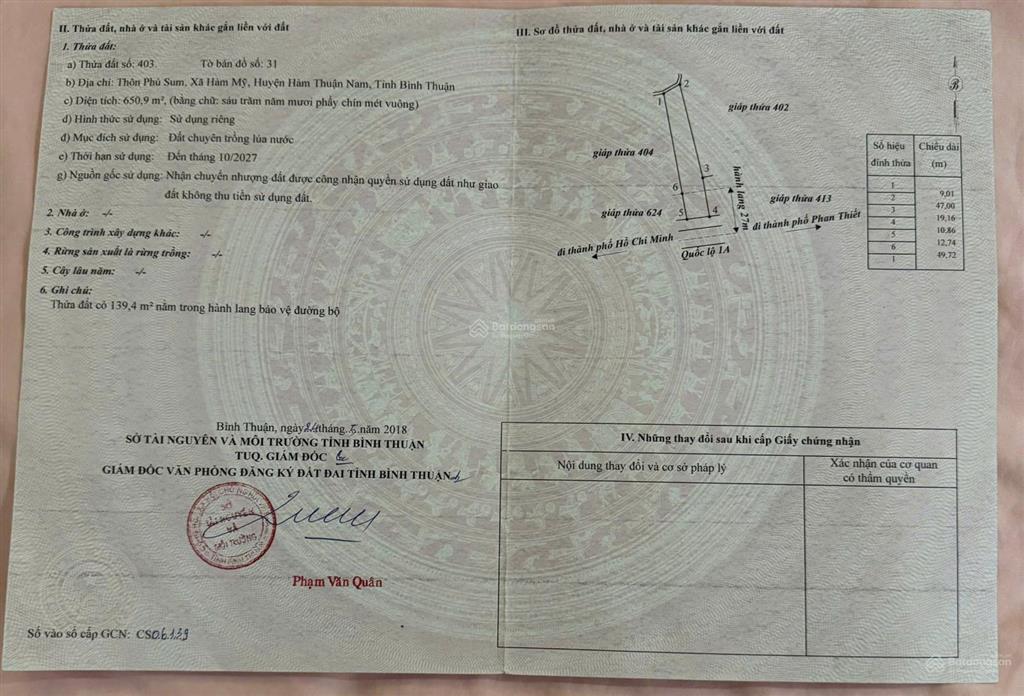 II. Thửa đất, nhà ở và tài sản khác gắn liền với đất
1. Thửa đất:
a) Thửa đất số: 403. Tờ bản đồ số: 31
b) Địa chỉ: Thôn Phú Sum, Xã Hàm Mỹ, Huyện Hàm Thuận Nam, Tỉnh Bình Thuận
c) Diện tích: 650,9 m², (bằng chữ: sáu trăm năm mươi phẩy chín mét vuông)
d) Hình thức sử dụng: Sử dụng riêng
đ) Mục đích sử dụng: Đất chuyên trồng lúa nước
e) Thời hạn sử dụng: Đến tháng 10/2027
g) Nguồn gốc sử dụng: Nhận chuyển nhượng đất được công nhận quyền sử dụng đất như giao
đất không thu tiền sử dụng đất.
2. Nhà ở: -/-
3. Công trình xây dựng khác: -/-
4. Rừng sản xuất là rừng trồng: -/-
5. Cây lâu năm: -/-
6. Ghi chú:
Thửa đất có 139,4 m² nằm trong hành lang bảo vệ đường bộ
Bình Thuận, ngày 24 tháng 5 năm 2018
SỞ TÀI NGUYÊN VÀ MÔI TRƯỜNG TỈNH BÌNH THUẬN
TUQ. GIÁM ĐỐC
GIÁM ĐỐC VĂN PHÒNG ĐĂNG KÝ ĐẤT ĐAI TỈNH BÌNH THUẬN
SỞ
TÀI NGUYÊN
VÀ
MÔI TRƯỜNG
Phạm Văn Quân
Số vào sổ cấp GCN: CS06139
III. Sơ đồ thửa đất, nhà ở và tài sản khác gắn liền với đất
B
1
2
3
4
5
6
giáp thửa 402
giáp thửa 404
giáp thửa 413
giáp thửa 624
hành lang 27m
đi thành phố Phan Thiết
đi thành phố Hồ Chí Minh
Quốc lộ 1A
Số hiệu đỉnh thửa
Chiều dài (m)
1
9,01
2
47,00
3
19,16
4
10,86
5
12,74
6
49,72
1
IV. Những thay đổi sau khi cấp Giấy chứng nhận
Nội dung thay đổi và cơ sở pháp lý
Xác nhận của cơ quan
có thẩm quyền
Batdongsan
Batdongsan